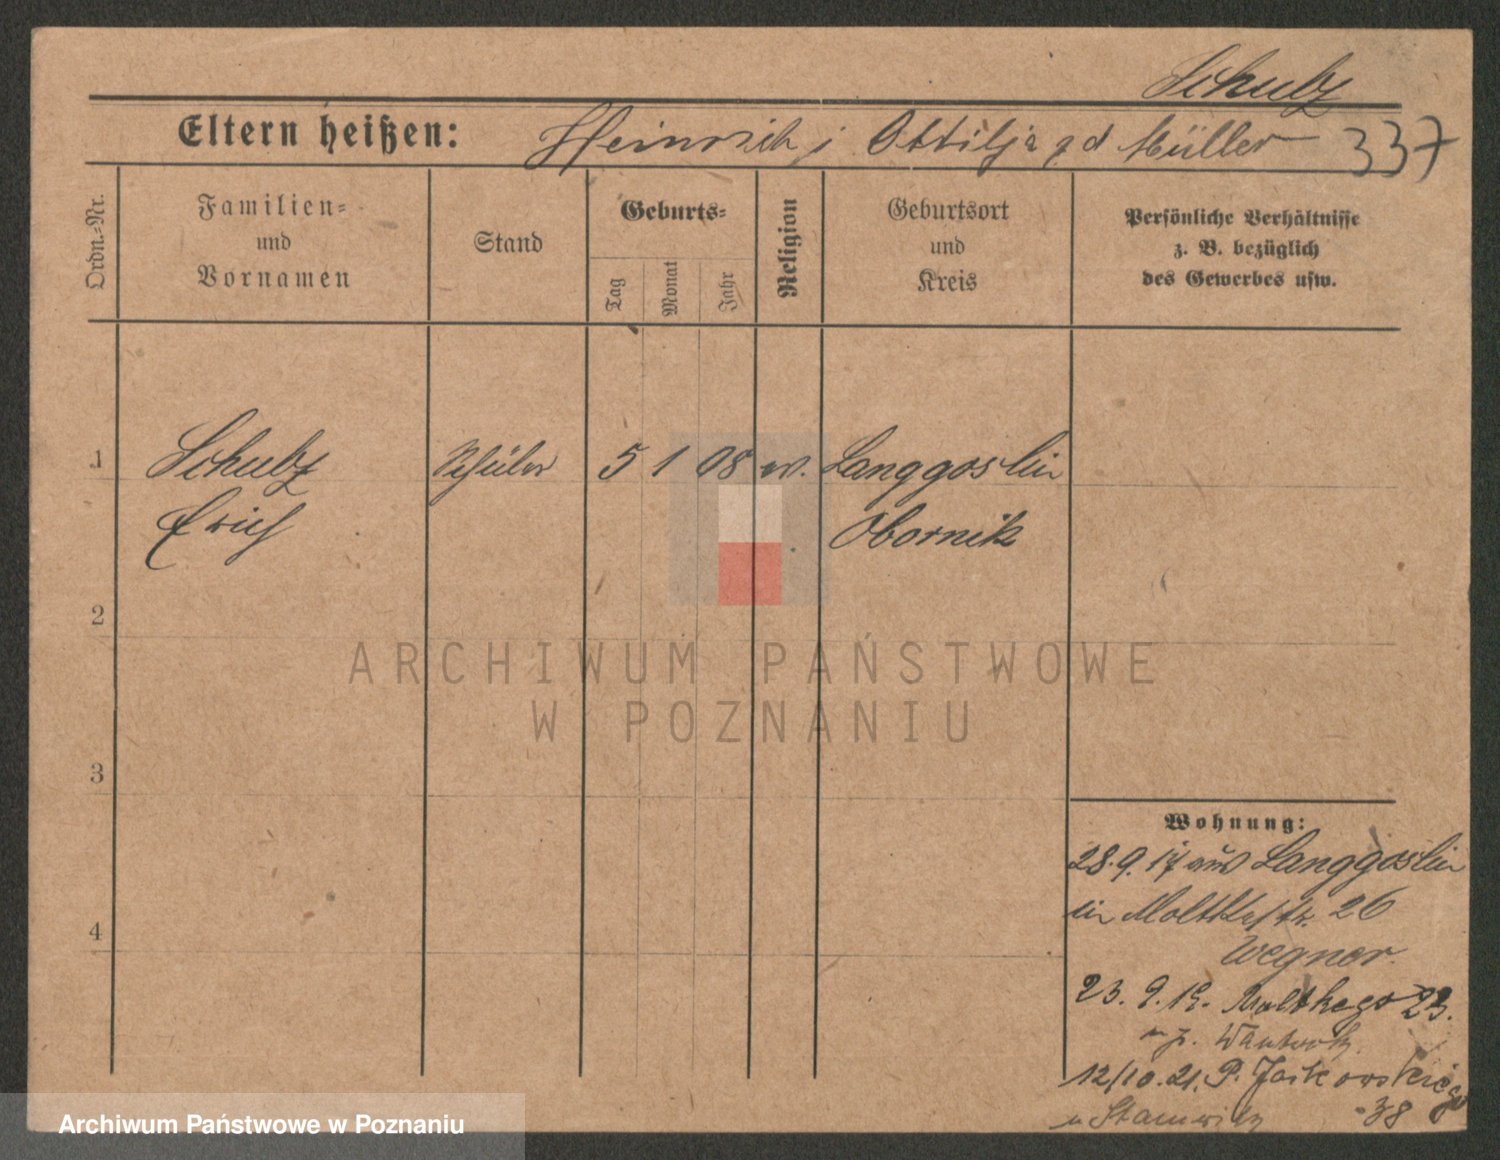 Schulz
Eltern heißen: Heinrich i Ottilja gd Müller 337
Ordn.-Nr.
Familien- und Vornamen
Stand
Geburts-
Tag Monat Jahr
Religion
Geburtsort und Kreis
Persönliche Verhältnisse
z. B. bezüglich
des Gewerbes usw.
1 Schulz Schüler 5 1 08 ev. Langgoslin
Erich Obornik
2
ARCHIWUM PAŃSTWOWE
W POZNANIU
3
Wohnung:
28.9.17 aus Langgoslin
in Moltkestr. 26
Wegner.
4
23. 9. 19. Moltkego 23.
12/10.21. P. Jackowskiego
38
Archiwum Państwowe w Poznaniu